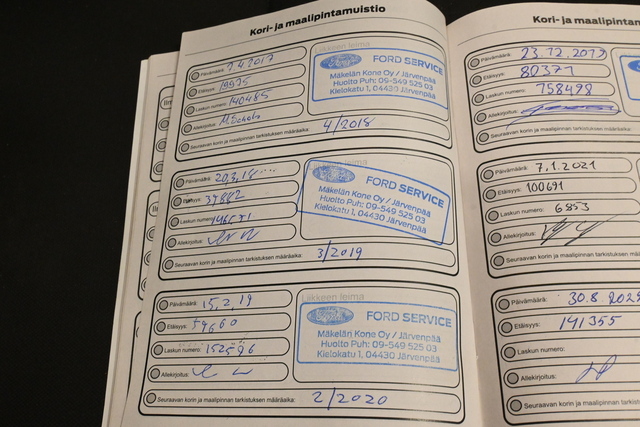 Kori- ja maalipintamuistio
Päivämäärä: 7.4.2017
Etäisyys: 19975
Laskun numero: 140485
Allekirjoitus:
Seuraavan korin ja maalipinnan tarkistuksen määräaika: 4/2018
Liikkeen leima
Ford
FORD SERVICE
Mäkelän Kone Oy / Järvenpää
Huolto Puh: 09-549 525 03
Kielokatu 1, 04430 Järvenpää
Päivämäärä: 20.3.18
Etäisyys: 39882
Laskun numero:
Allekirjoitus:
Seuraavan korin ja maalipinnan tarkistuksen määräaika: 3/2019
Liikkeen leima
Ford
FORD SERVICE
Mäkelän Kone Oy / Järvenpää
Huolto Puh: 09-549 525 03
Kielokatu 1, 04430 Järvenpää
Päivämäärä: 15.2.19
Etäisyys: 59660
Laskun numero: 152596
Allekirjoitus:
Seuraavan korin ja maalipinnan tarkistuksen määräaika: 2/2020
Liikkeen leima
Ford
FORD SERVICE
Mäkelän Kone Oy / Järvenpää
Huolto Puh: 09-549 525 03
Kielokatu 1, 04430 Järvenpää
Kori- ja maalipintam
Päivämäärä: 23.12.2019
Etäisyys: 80371
Laskun numero: 758498
Allekirjoitus:
Seuraavan korin ja maalipinnan tarkistuksen määräaika:
Päivämäärä: 7.1.2021
Etäisyys: 100691
Laskun numero: 6853
Allekirjoitus:
Seuraavan korin ja maalipinnan tarkistuksen määräaika:
Päivämäärä: 30.8.202
Etäisyys: 141355
Laskun numero:
Allekirjoitus:
Seuraavan korin ja maalipinnan tarkistuksen määräa